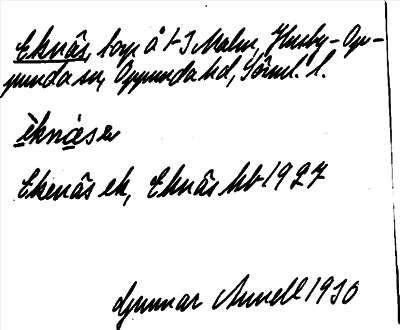 Eknäs, torp å t-J Malm, Husby-Op-
punda sn, Oppunda hd, Söml. l.
èknäsen
Ekenäs ek, Eknäs hb 1927
Gunnar Annell 1930